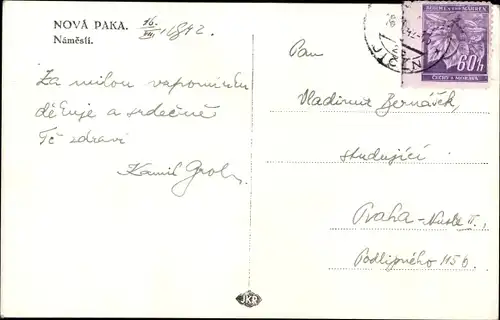 NOVÁ PAKA.
Náměstí.
16/VIII. 1942.
Za milou vzpomínku
děkuje a srdečně
Tě zdraví
Kamil
Pan
Vladimír Bernášek,
studující
Praha - Nusle II.,
Podlipného 1156.
60 h
ČECHY A MORAVA
JKR